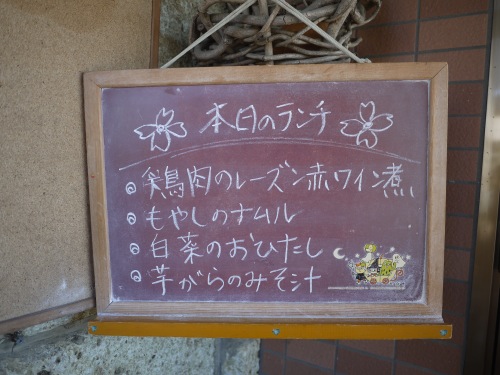 本日のランチ
鶏肉のレーズン赤ワイン煮
もやしのナムル
白菜のおひたし
芋がらのみそ汁